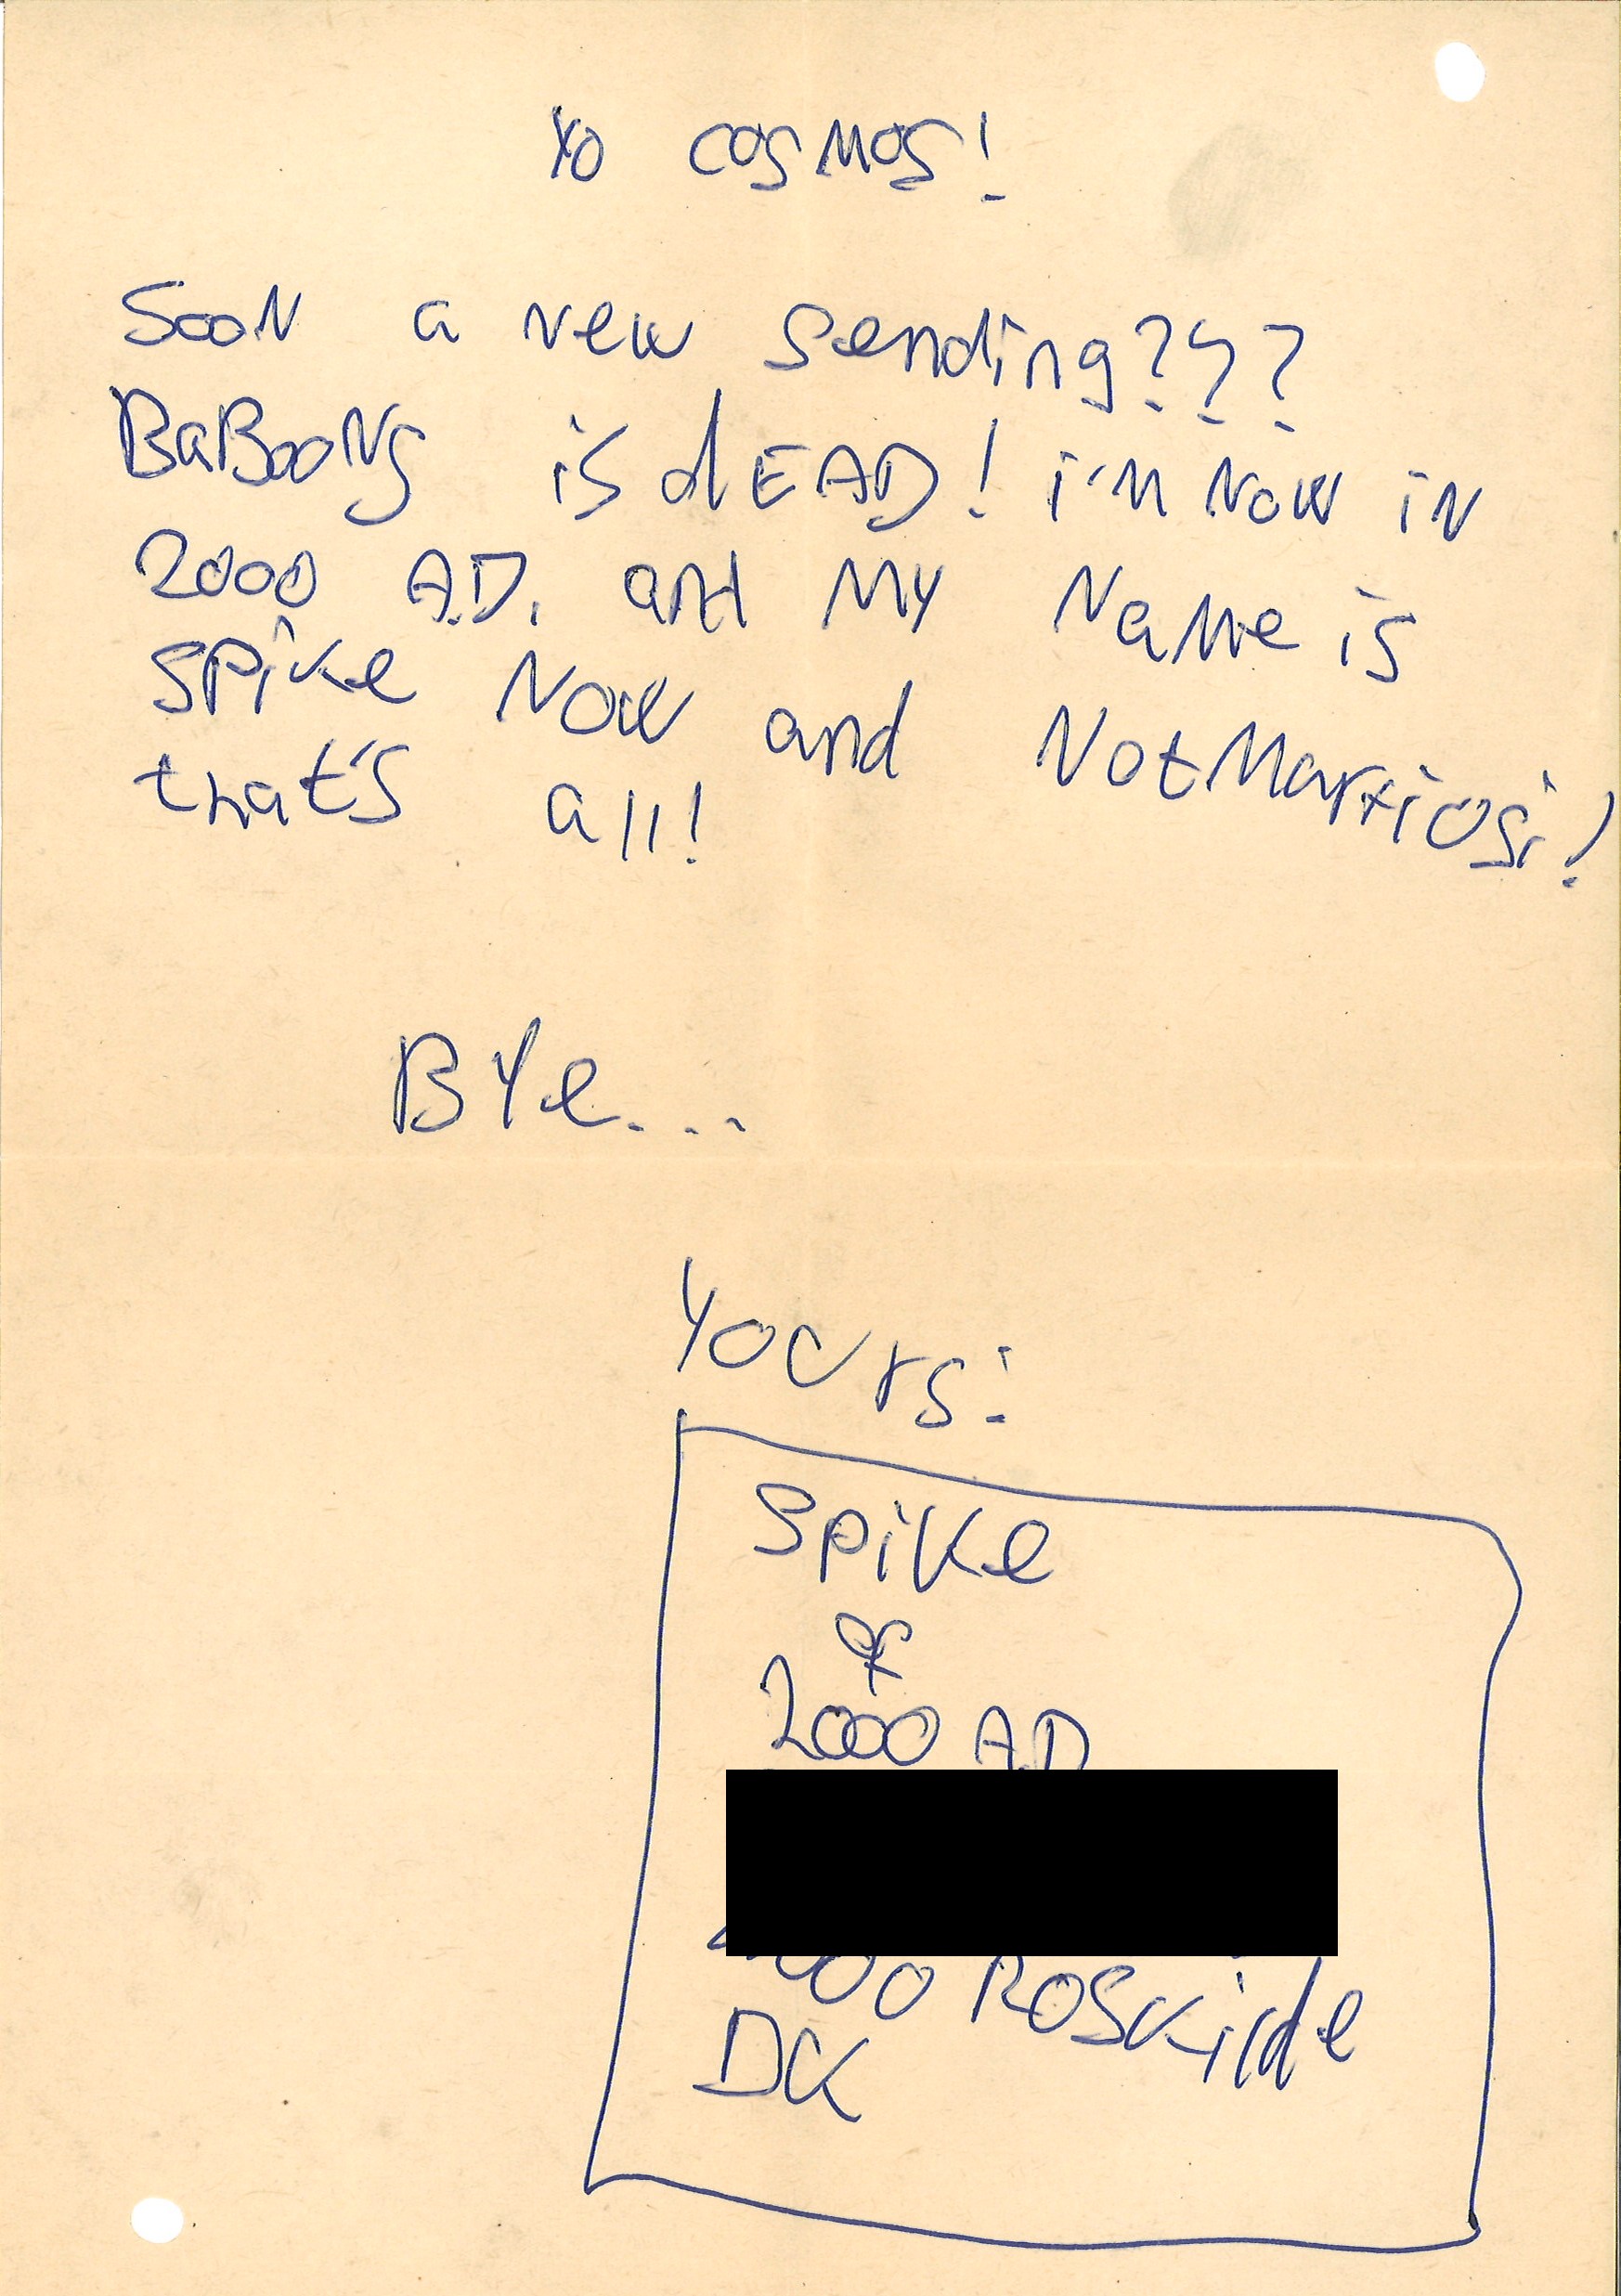 Yo cosmos!
Soon a new sending???
BaBooNS is dEAD! i'm Now in
2000 A.D. and My Name is
Spike Now and Not
that's all!
BYe...
Yours:
Spike
of
2000 A.D
Roskilde
DK